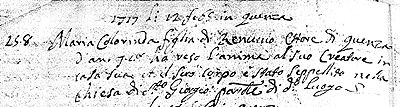 1717 li 12 feb in quenza
258. Maria Colorinda figlia di Renuccio Ettore di quenza
d'anni ha reso l'anima al suo Creatore in
casa sua et il suo corpo è stato seppellito nella
chiesa di Sto Giorgio di do luogo